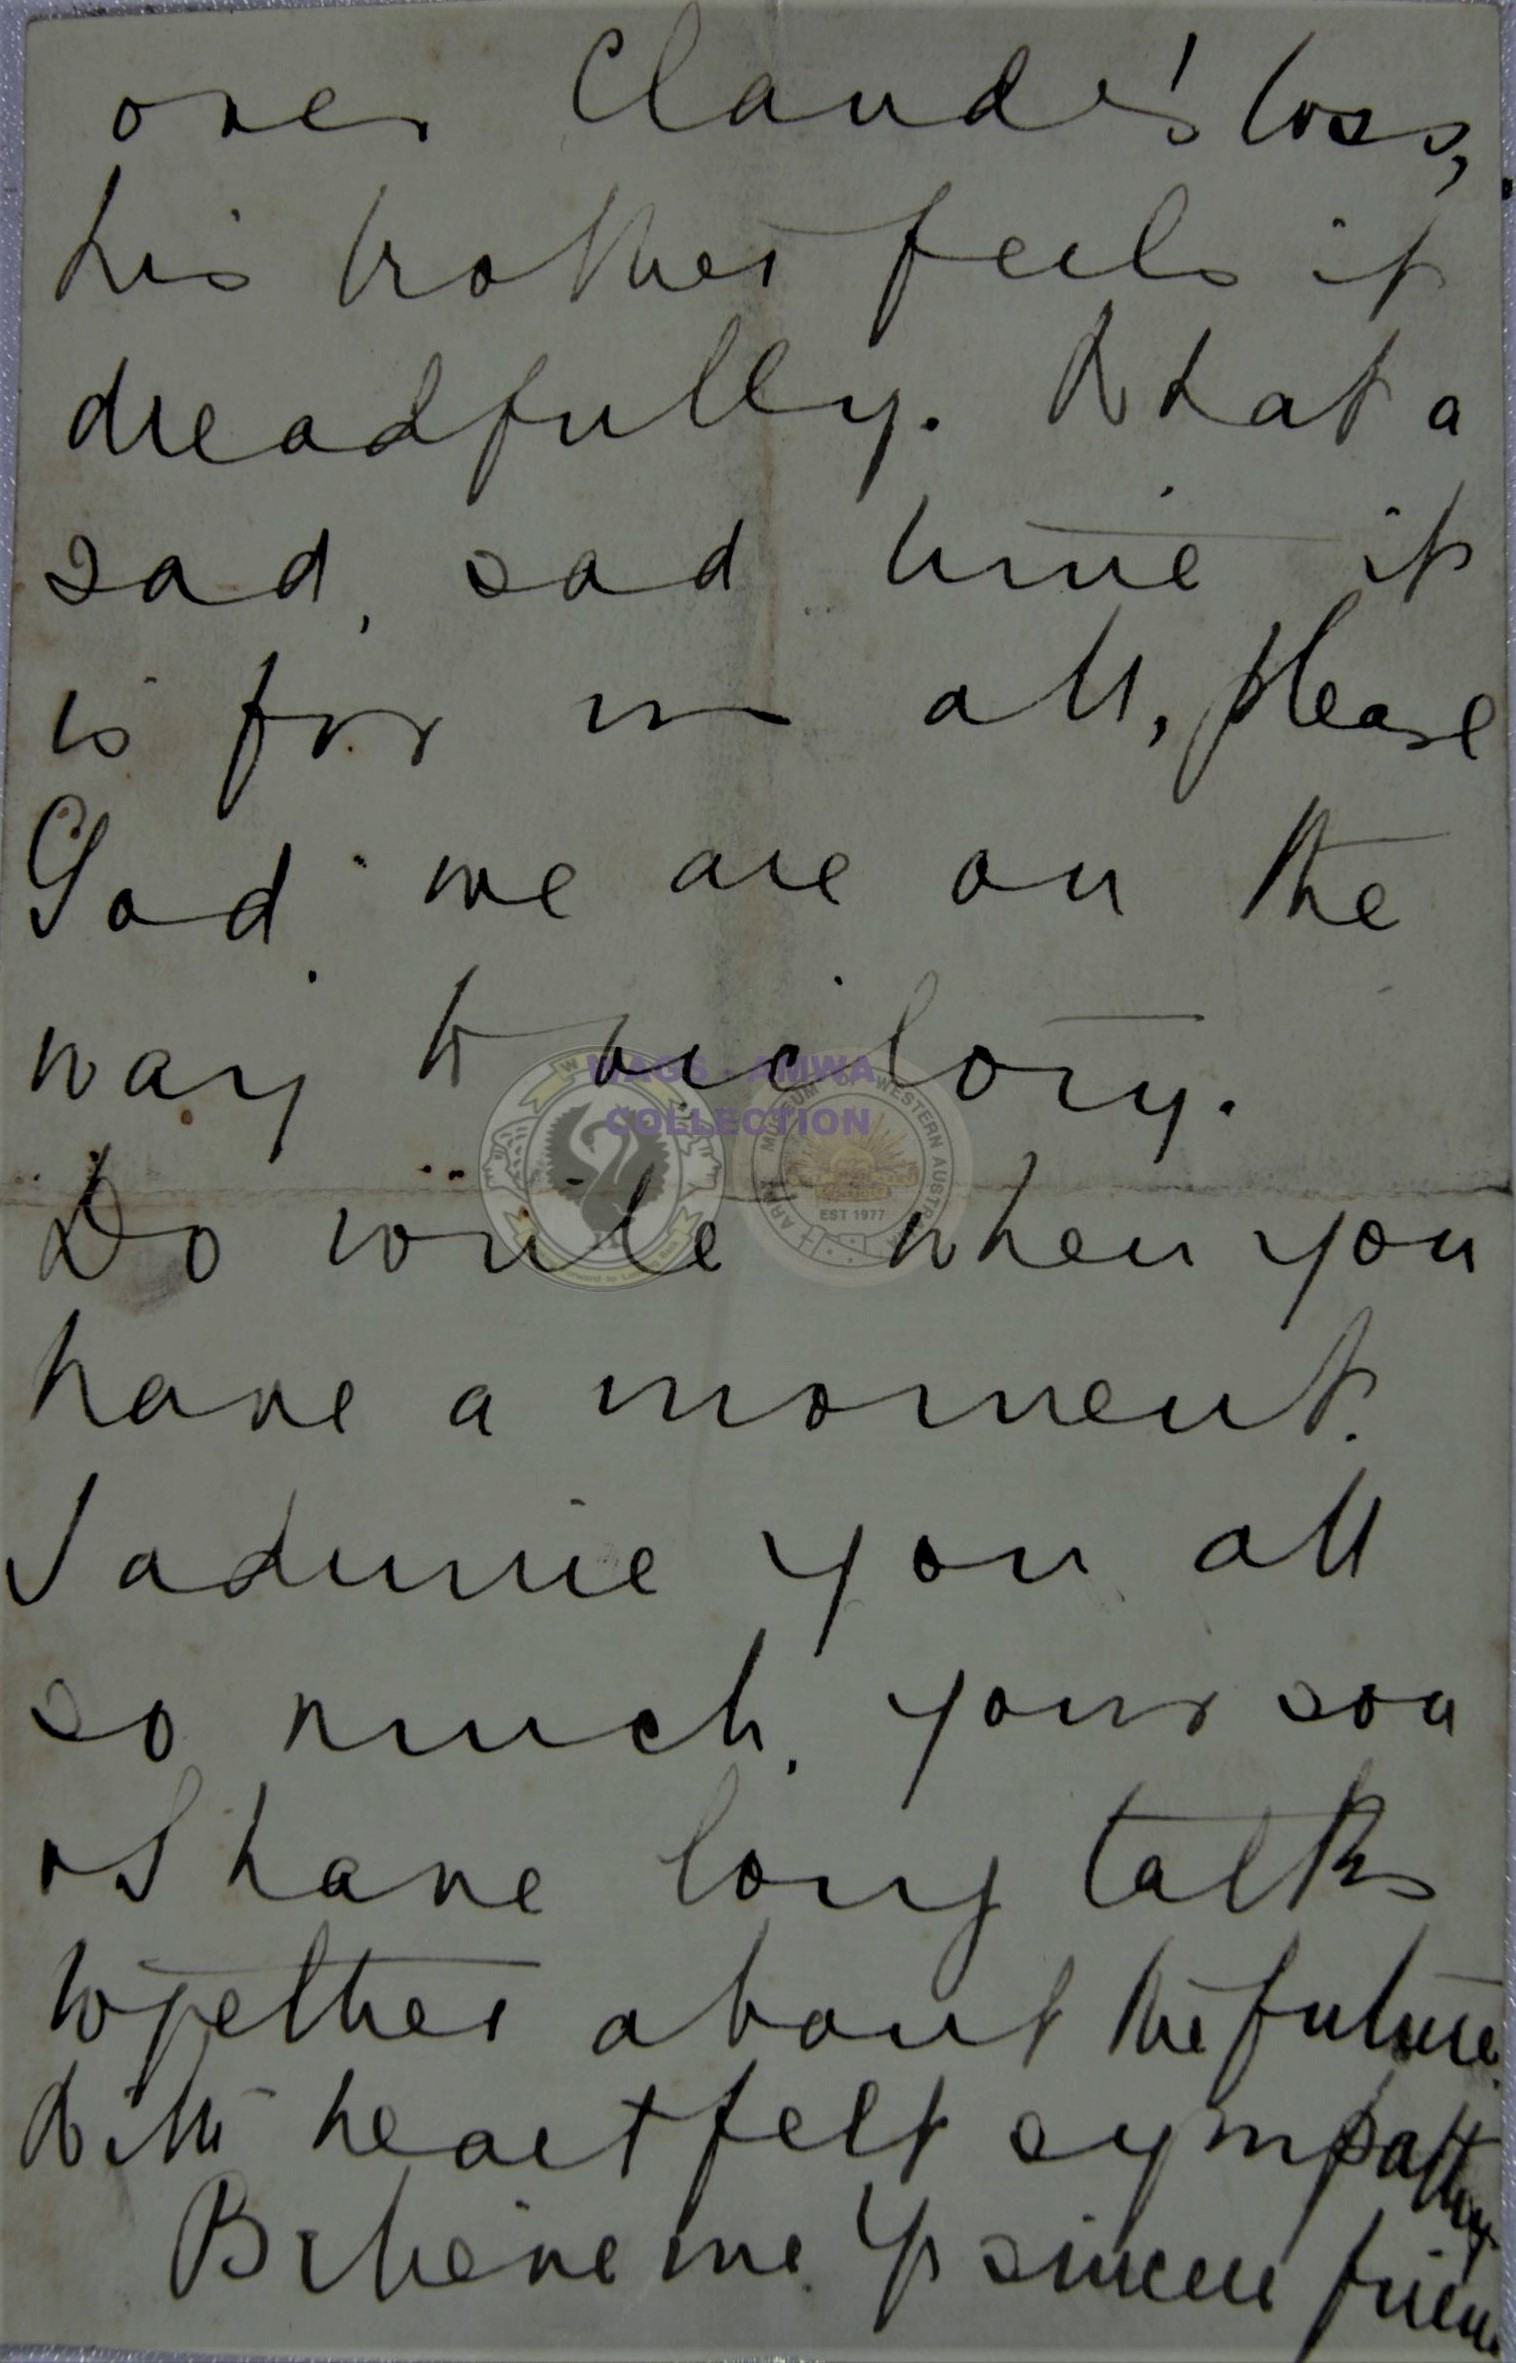 over Claude's loss,
his brother feels it
dreadfully. What a
sad, sad time it
is for us all, please
God we are on the
way to victory.
MAGS - AMWA
COLLECTION
MUSEUM OF WESTERN AUSTR
ARMY
EST 1977
Do write when you
have a moment.
I admire you all
so much, your son
& I have long talks
together about the future.
With heartfelt sympathy
Believe me Yr sincere friend